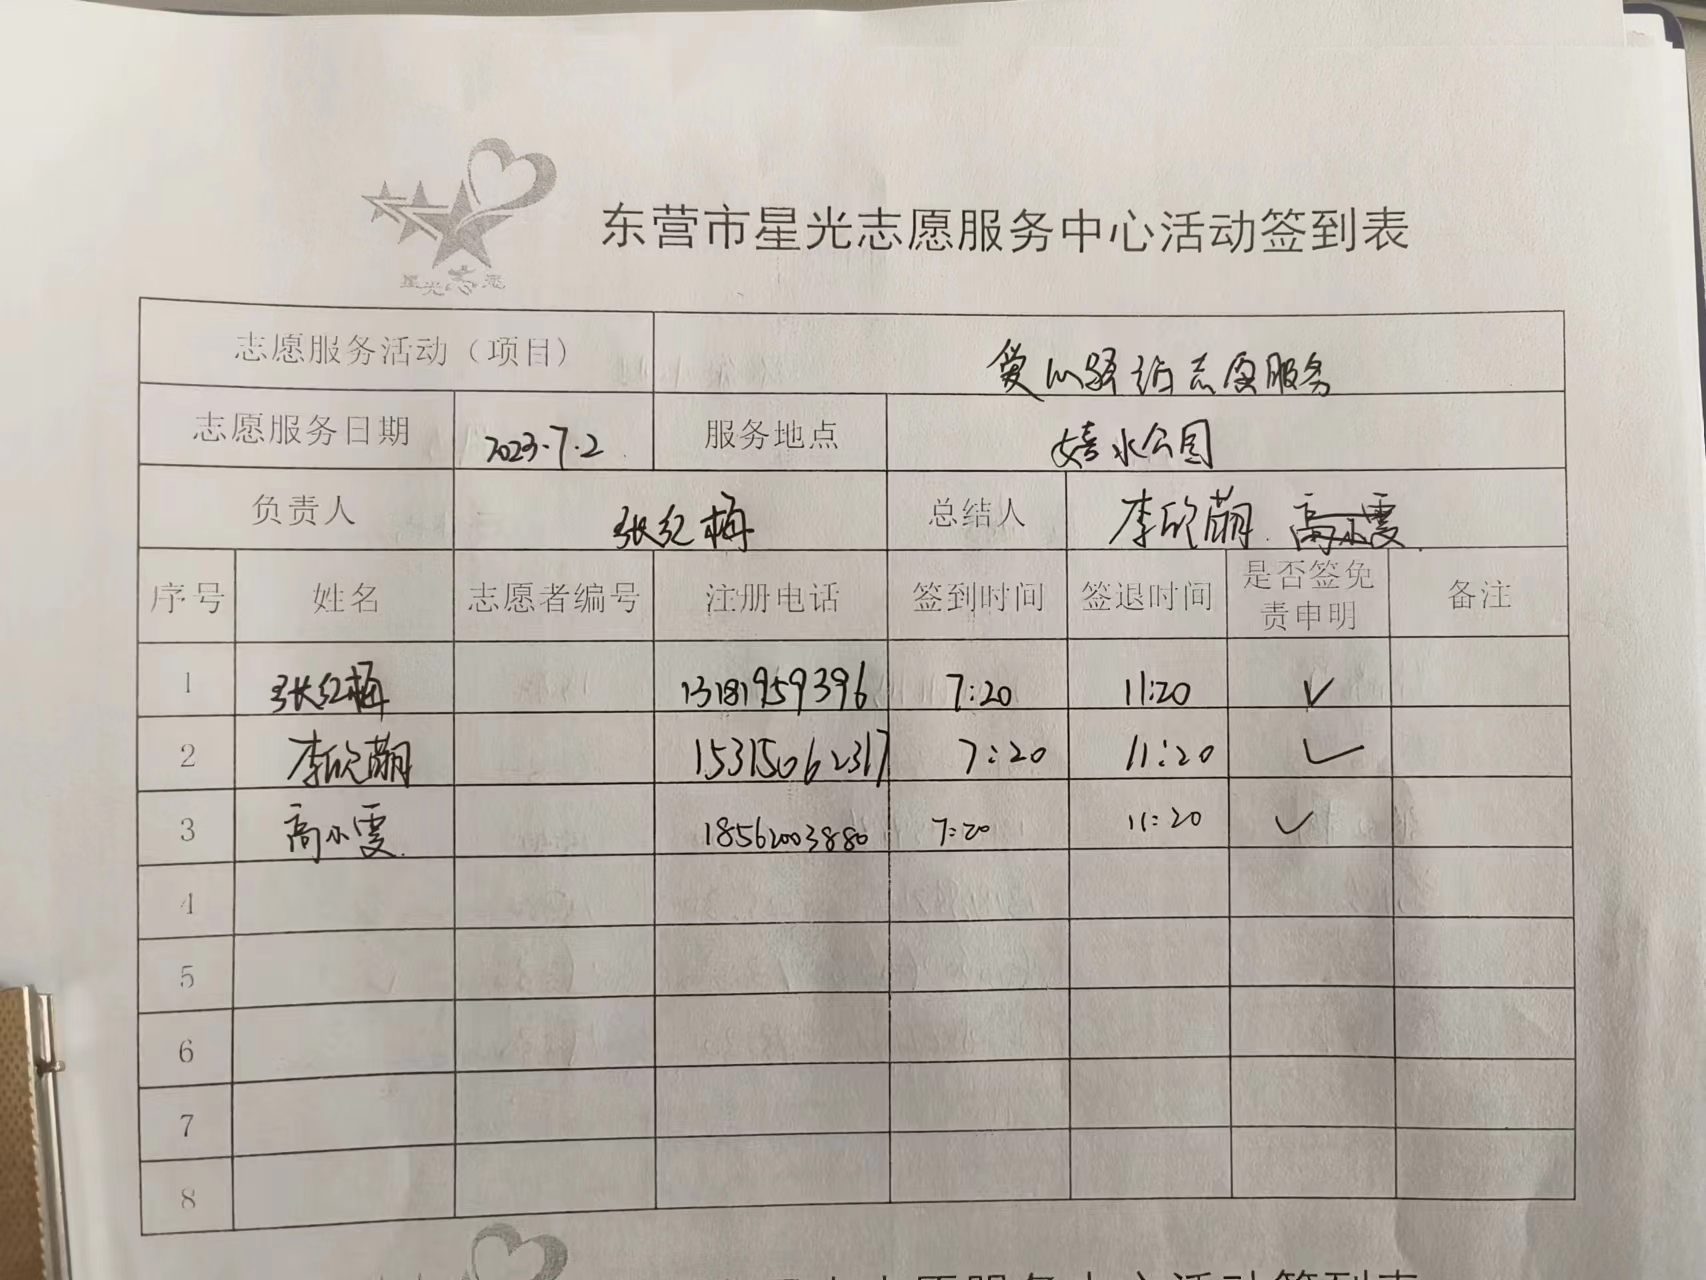 星光志愿
东营市星光志愿服务中心活动签到表
志愿服务活动（项目） 爱心驿站志愿服务
志愿服务日期 2023.7.2 服务地点 嬉水公园
负责人 张红梅 总结人 李欣萌. 高小雯.
序号 姓名 志愿者编号 注册电话 签到时间 签退时间 是否签免责申明 备注
1 张红梅 13181959396 7:20 11:20 ✓
2 李欣萌 15315062317 7:20 11:20 ✓
3 高小雯. 18562003880 7:20 11:20 ✓
4
5
6
7
8
志愿服务中心活动签到表